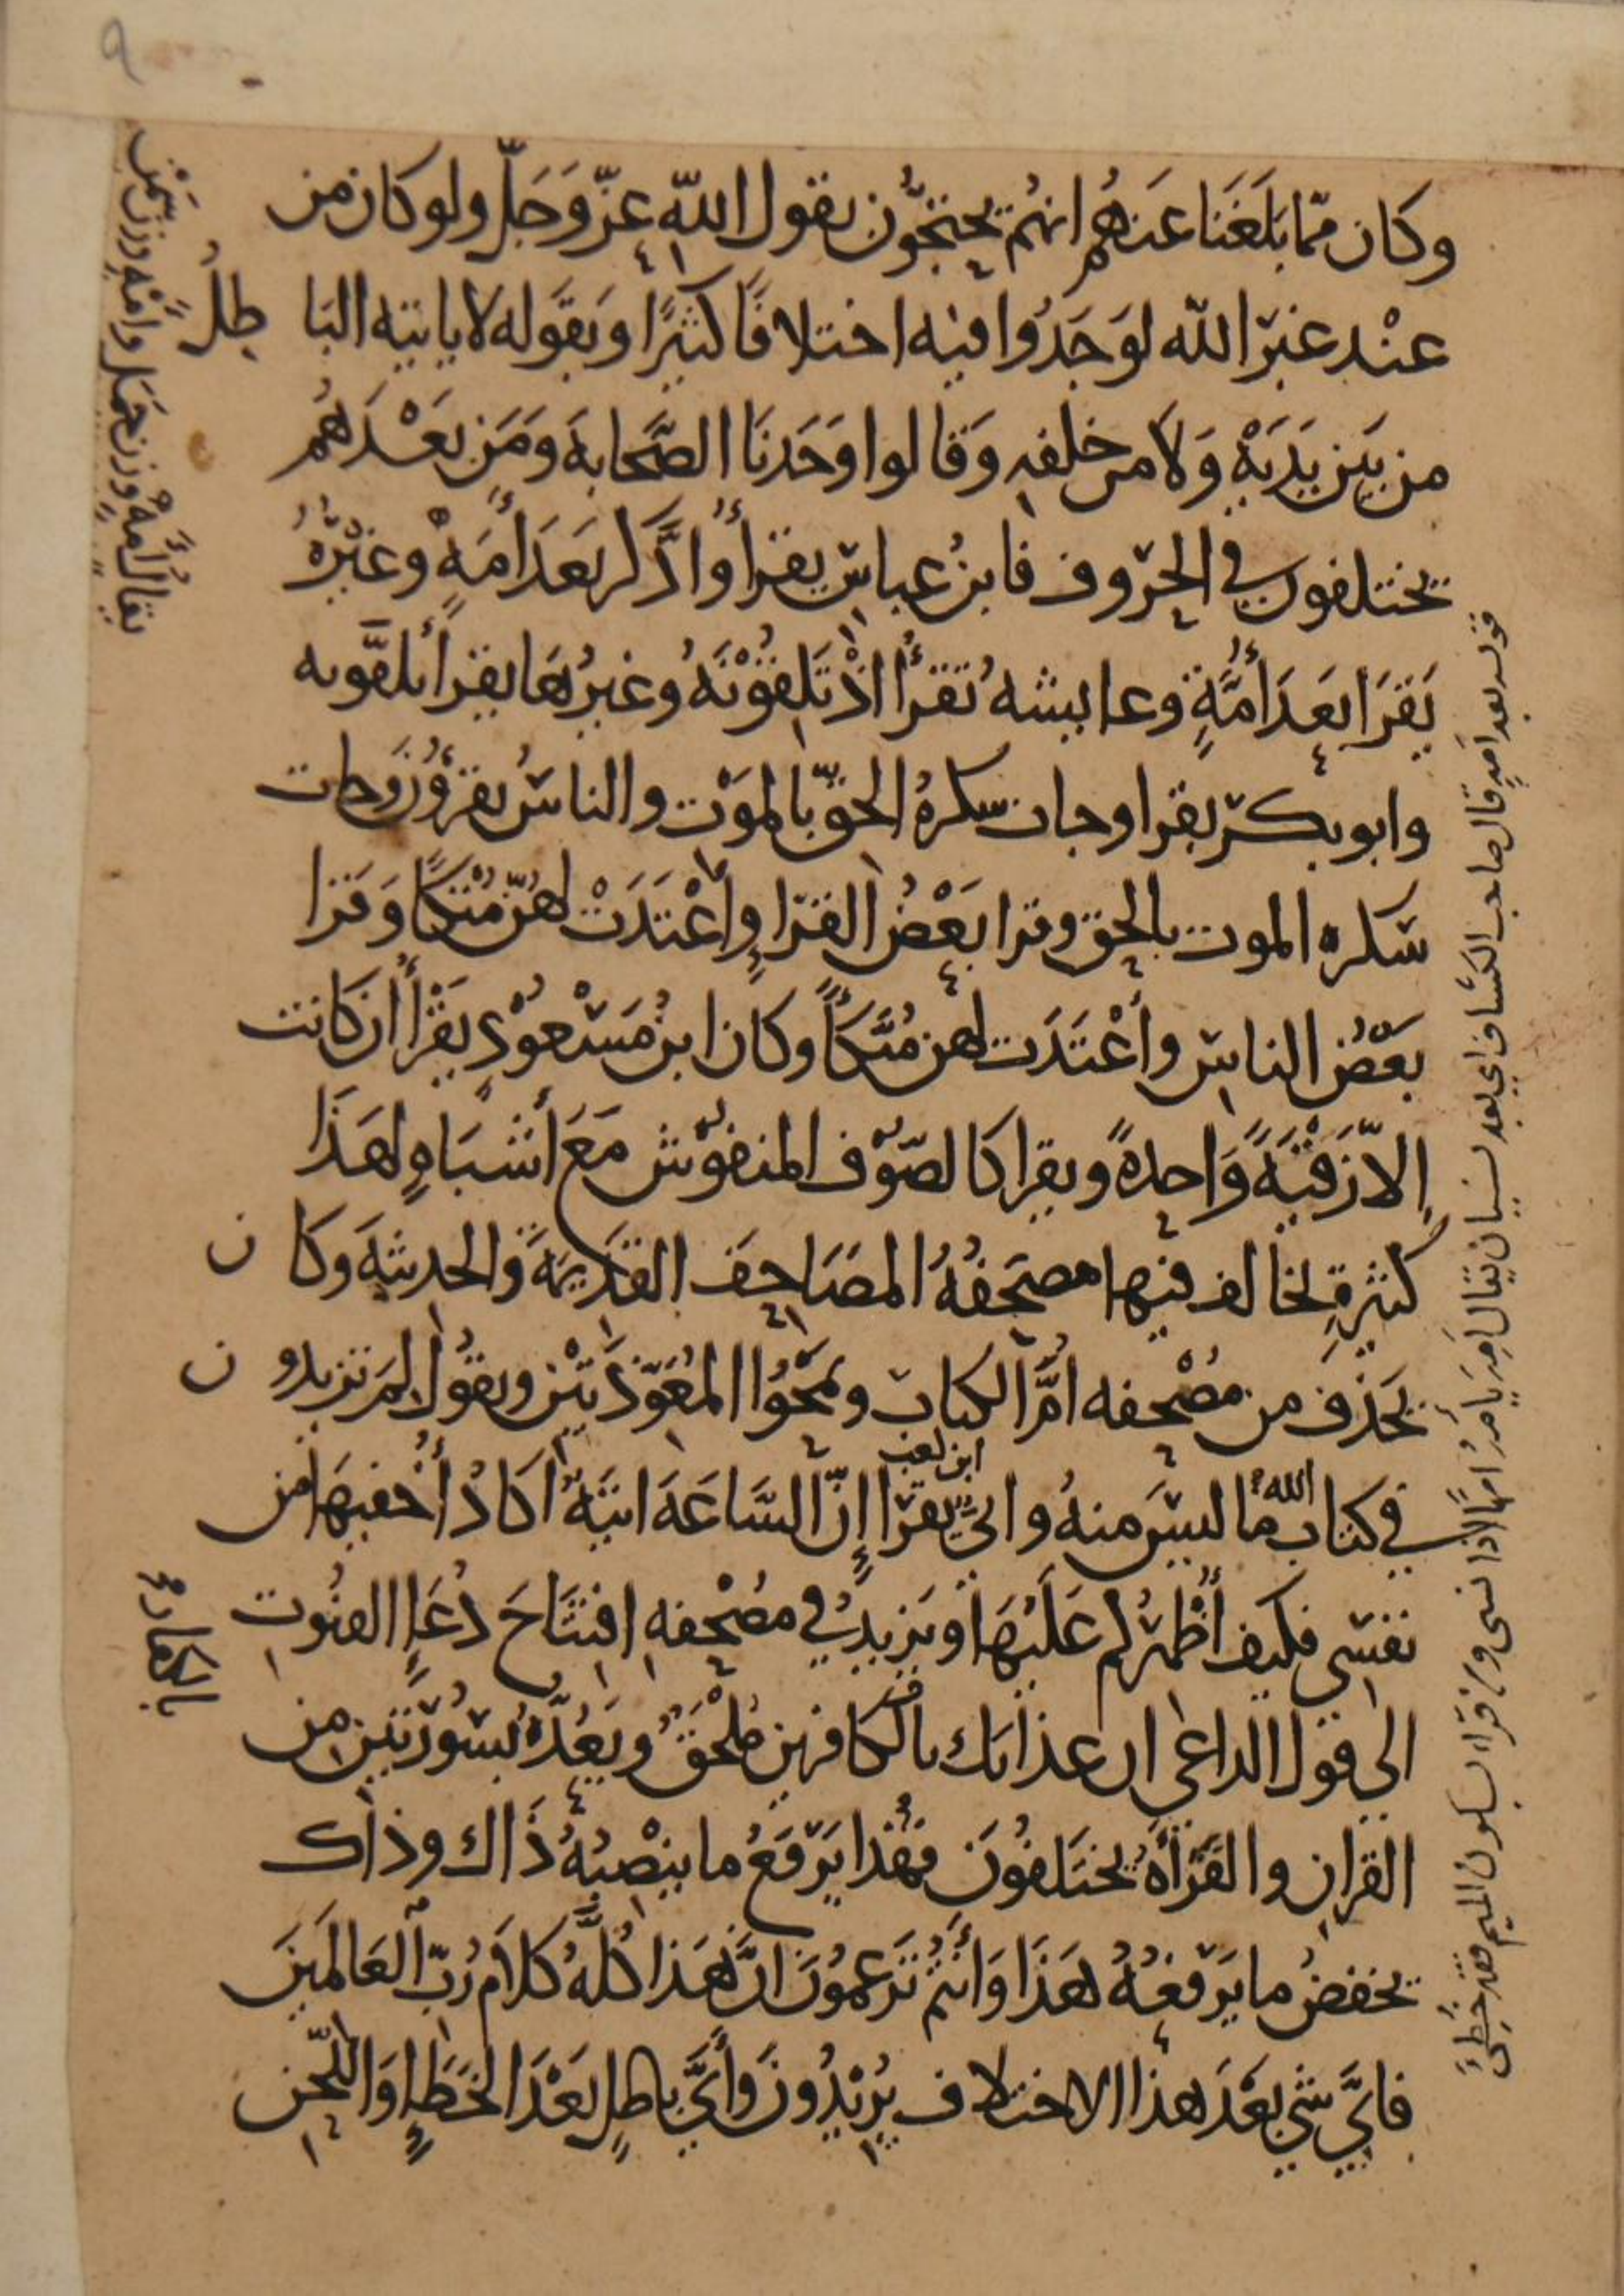 ٩
وكان ممّا بَلَغَنا عَنهُم انهُم يحتجُّون بقول اللّه عزّ وَجَلّ ولو كان من
عنْد غير اللّه لوَجَدُوا فيه اختلافًا كثيرًا وبقَوله لا ياتيه البَا طِلُ
من بَين يَدَيْهِ وَلَا من خلفهِ وَقالوا وَجَدنَا الصَّحابهَ وَمَن بَعْدَهُم
يختلفون في الحرُوف فابنُ عباسٍ يقرأُ وادَّكر بَعَدَ أمَهٍ وغيرُهُ
يَقرَا بَعدَ أُمَّةٍ وعايشهُ تقرأُ اذْ تَلِقُوْنَهُ وغيرُهَا يقرأ تلقَّونه
وابو بكر يقرا وجات سكرهُ الحقّ بالموَت والناسُ يقرؤُنَ وجات
سكره الموت بالحق وقرا بَعْضُ القرّاءِ وأعْتَدَتْ لهنّ مُتْكًا وَقرا
بَعضُ الناس وأعْتَدَت لهن مُتَّكَأً وكان ابنُ مَسْعُوْدٍ يَقْرأُ ان كانت
إلاّ زَقْيَةً وَاحدهً ويقرا كالصّوْف المنفوْش مَعَ أشبَاهٍ لهَذَا
كثيرةٍ يخالف فيها مصحَفُهُ المصَاحِفَ القدَيمَةَ وَالحديثهَ وَكَا ن
يَحذفُ من مصْحفه امَّ الكتاب ويمحُوا المعَوّذتَيْن ويقوُل لِمَ تزيدو ن
في كتاب الله ما ليسَ منهُ وابيٌّ يقرا إنّ السَّاعَهَ اتيَهٌ اكادُ أُخفيهَا من
ابن كعب
نفسي فكيف أُظهرُكم عَلَيْهَا ويَزيدُ في مصْحفهِ افتتَاحَ دُعَاءِ القنُوت
الى قول الداعي ان عذابك بالكافرين مُلْحَقٌ ويَعُدّهُ سُورَتَين من
القرانِ والقَرَأةُ يختَلفُونَ فهَذا يَرْفَعُ ما ينْصبُهُ ذَاك وذاك
يخفضُ ما يَرْفعُهُ هَذَا وَأنتُم تَزعمُونَ انَّ هَذا كُلَّهُ كلامُ رَبّ العَالمَين
فايَّ شي بَعْدَ هذا الاختلاف يُريْدُونَ وأيَّ باطلٍ بَعْدَ الخَطَإِ وَاللَّحن
يقال أمَهٌ وزن حَمَل وامْهٌ وزن سَمْن
قوله بعد امَهٍ قال صاحب الكشاف اي بعد نسيان يقال أَمِهَ يأمَهُ امَهًا اذا نسي ومن قراء بسكون الميم فقد خطئ